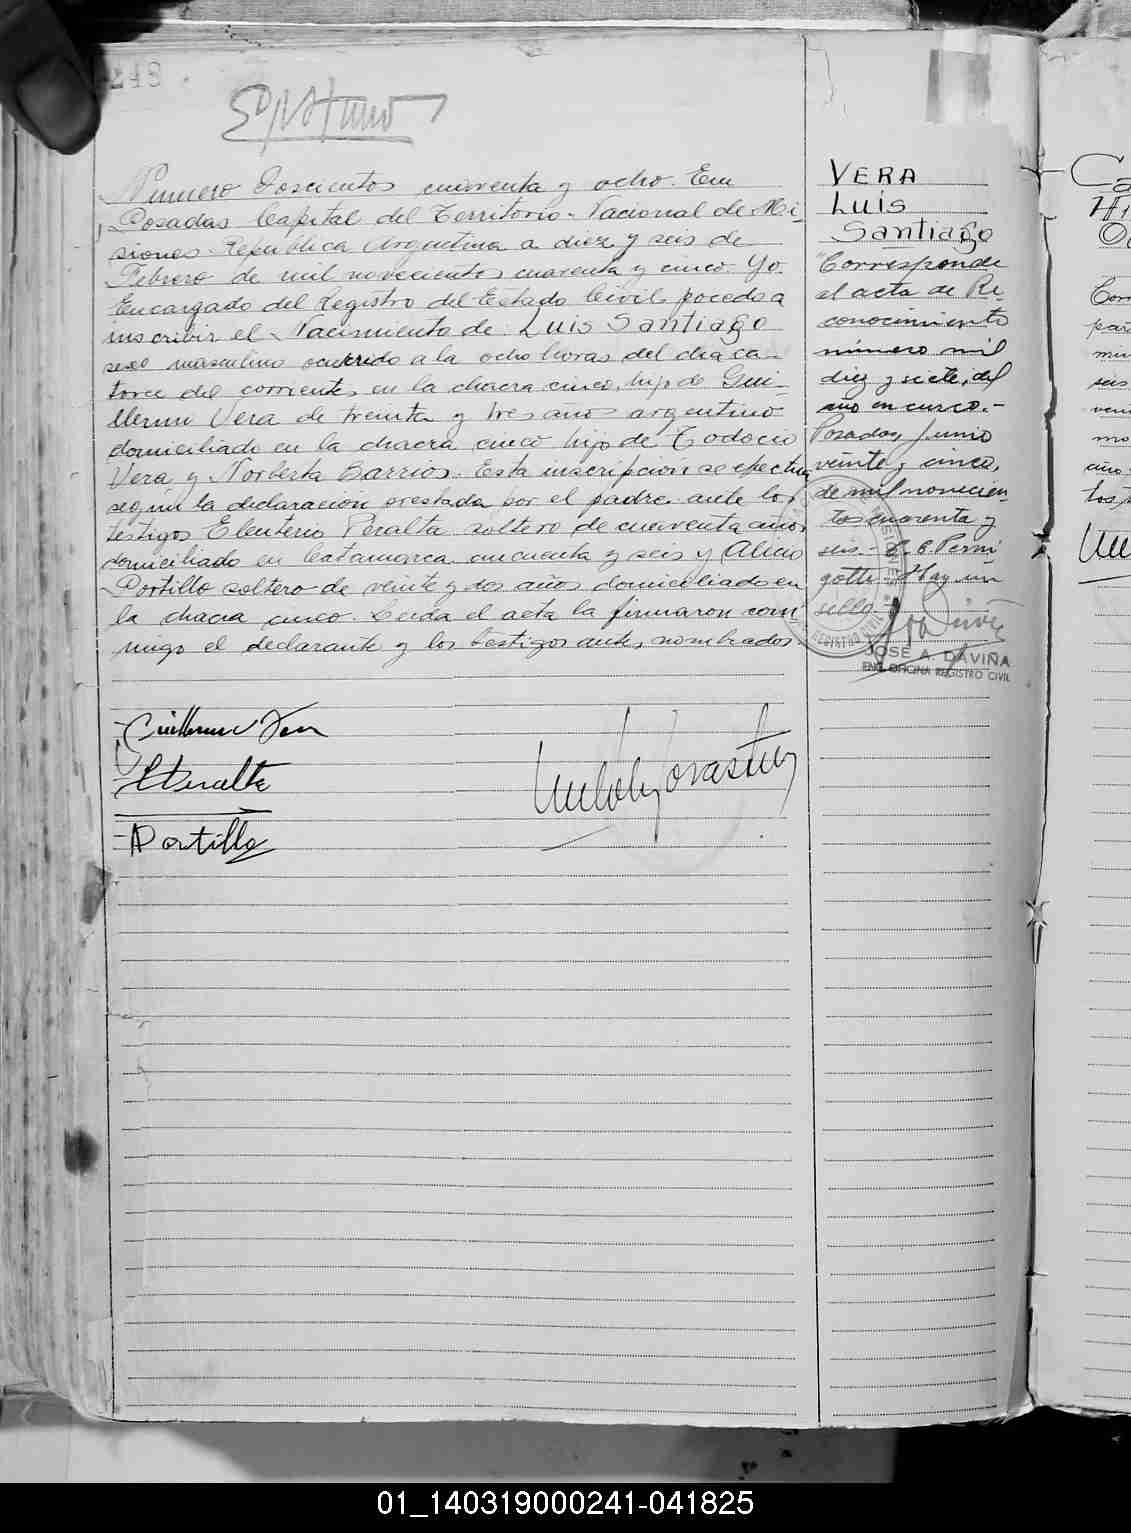 248
Numero doscientos cuarenta y ocho. En
Posadas Capital del Territorio Nacional de Mi-
siones República Argentina a diez y seis de
Febrero de mil novecientos cuarenta y cinco. Yo
Encargado del Registro del Estado Civil, pocedo a
inscribir el Nacimiento de: Luis Santiago
sexo masculino ocurrido a la ocho horas del dia ca-
torce del corriente, en la chacra cinco, hijo de Gui-
llermo Vera de treinta y tres años argentino
domiciliado en la chacra cinco hijo de Todocio
Vera y Norberta Barrios. Esta inscripción se efectua
según la declaración prestada por el padre ante los
testigos Eleuterio Peralta soltero de cuarenta años
domiciliado en Catamarca cincuenta y seis y Alicio
Portillo soltero de veinte y dos años domiciliado en
la chacra cinco. Leida el acta la firmaron con-
migo el declarante y los testigos antes nombrados
Guillermo Vera
EPeralta
APortillo
VERA
Luis
Santiago
"Corresponde
al acta de Re-
conocimiento
número mil
diez y siete, del
año en curso.-
Posadas, Junio
veinte y cinco,
de mil novecien
tos cuarenta y
seis.-
Hay un
sello.-"
MISIONES
REGISTRO CIVIL
JOSÉ A. DAVIÑA
ENC. OFICINA REGISTRO CIVIL
01_140319000241-041825